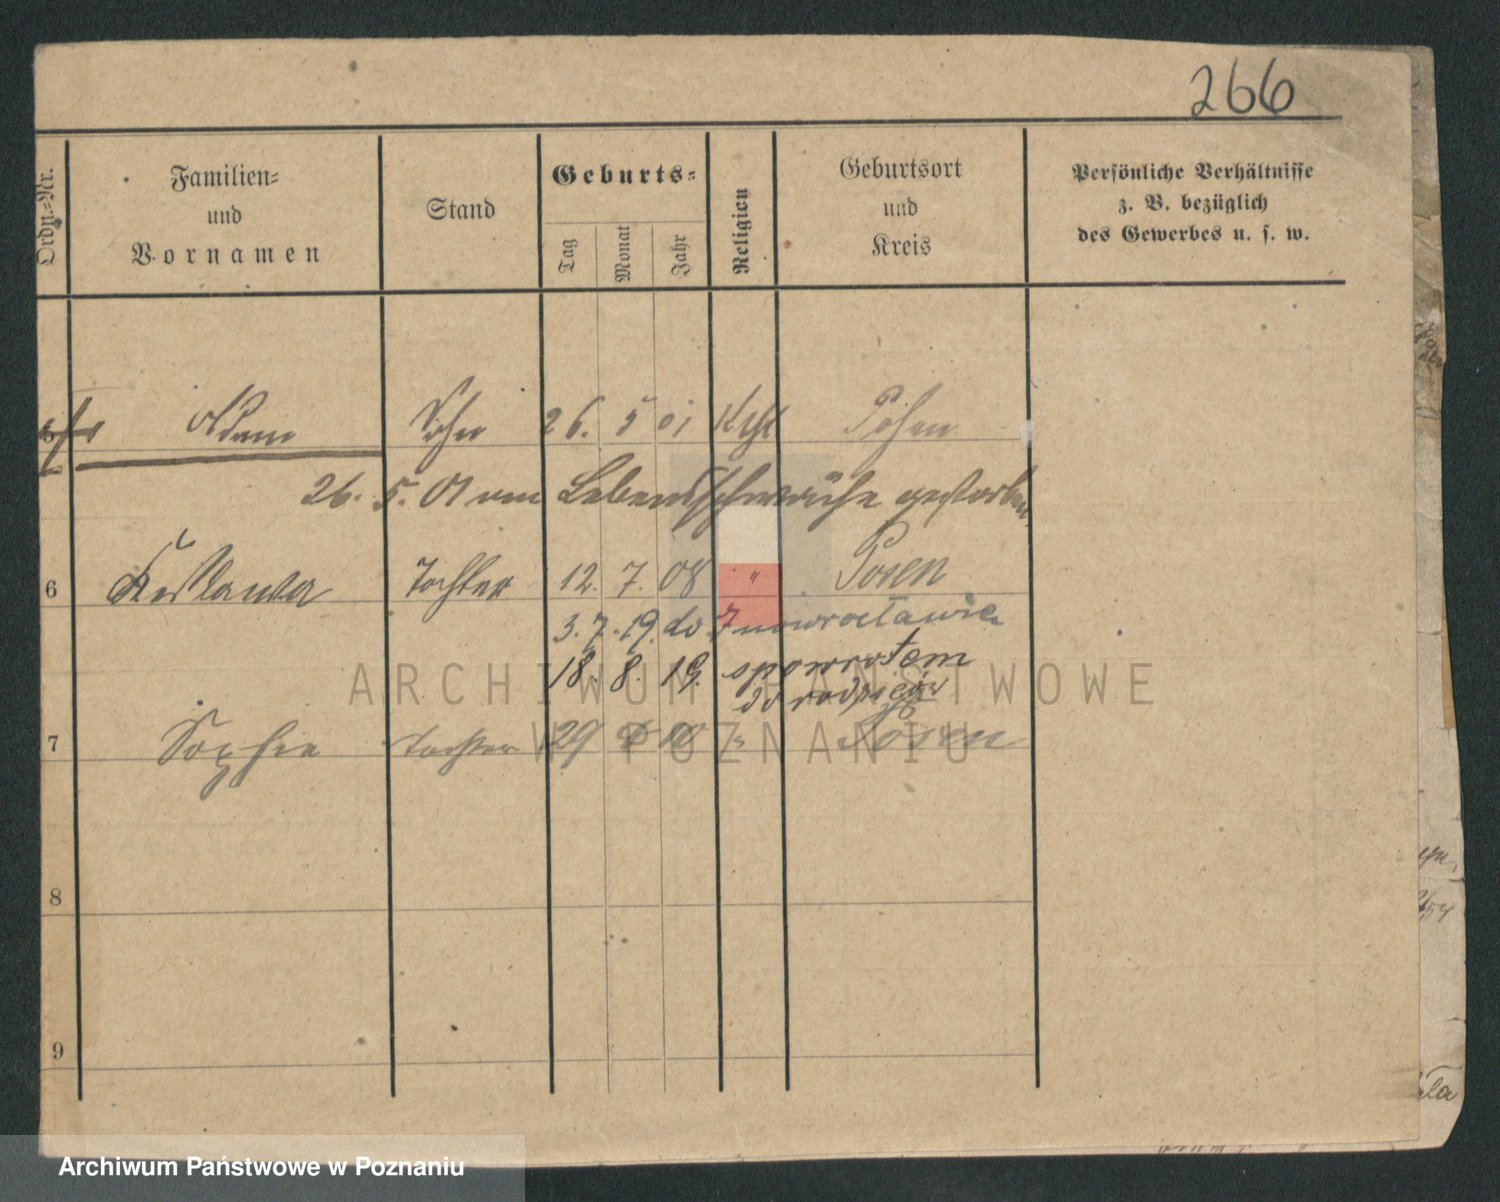 266
Ordn.-Nr.
Familien-
und
Vornamen
Stand
Geburts-
Tag
Monat
Jahr
Religion
Geburtsort
und
Kreis
Persönliche Verhältnisse
z. B. bezüglich
des Gewerbes u. s. w.
5 Adam Sohn 26. 5 01 Kth Posen
26. 5. 01 an Lebensschwäche gestorben
6 Tochter 12. 7. 08 " Posen
3. 7. 19. do Inowrocławia
18. 8. 19. spowrotem
do rodziców
7 Sophie Tochter 29 10 Posen
8
9
ARCHIWUM PAŃSTWOWE
W POZNANIU
Archiwum Państwowe w Poznaniu